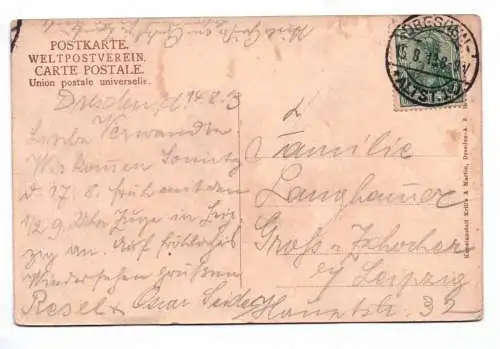 POSTKARTE.
WELTPOSTVEREIN.
CARTE POSTALE.
Union postale universelle.
Dresden d. 14.8.13
Liebe Verwandte
Wir kommen Sonntag
d. 17.8. früh mit dem
1/2 9 Uhr Zuge in Leip
zig an. Auf fröhliches
Wiedersehen grüssen
Resel + Oscar Seidel
DRESDEN-
15.8.13. 8-9V
ALTST.
Familie
Langhauer
Gross-Zschocher
by Leipzig
Hauptstr. 32
Kunstanstalt Krille & Martin, Dresden-A.